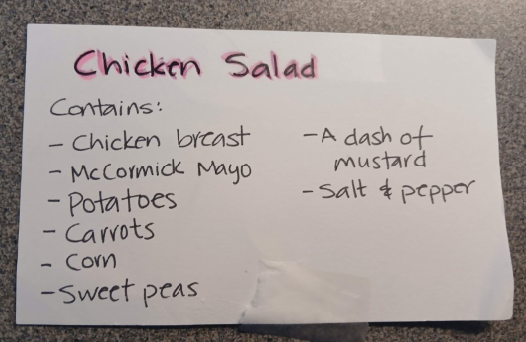 Chicken Salad
Contains:
- Chicken breast
- McCormick Mayo
- Potatoes
- Carrots
- Corn
- Sweet peas
- A dash of
mustard
- Salt & pepper